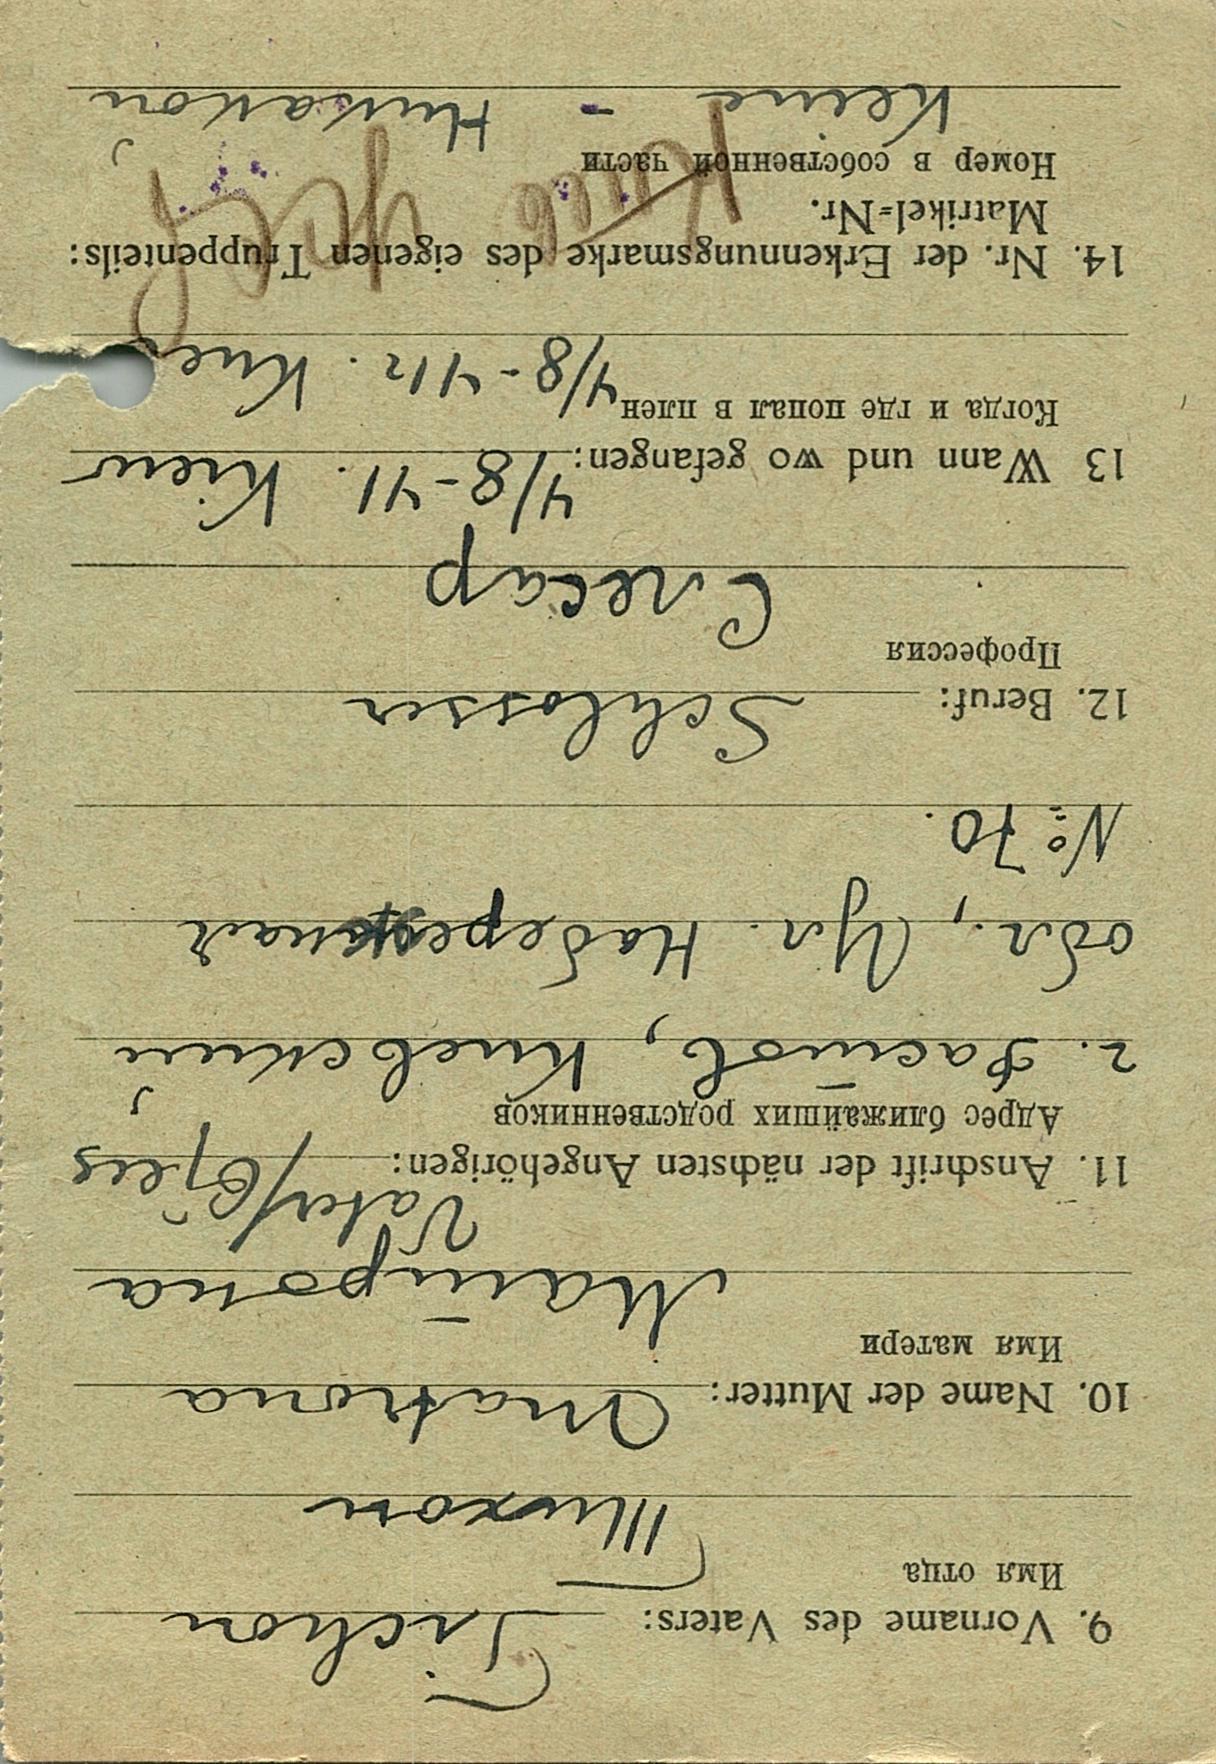 9. Vorname des Vaters: Tichon
Имя отца
Тихон
10. Name der Mutter: Matrona
Имя матери
Матрона
11. Anschrift der nächsten Angehörigen: Vater/Отец
Адрес ближайших родственников
г. Фастов, Киевский
обл., Ул. Набережная
№ 70.
12. Beruf: Schlosser
Профессия
Слесар
13 Wann und wo gefangen: 4/8-41. Kiew
Когда и где попал в плен 4/8-41г. Киев
14. Nr. der Erkennungsmarke des eigenen Truppenteils:
Matrikel=Nr.
Номер в собственной части
Киев
Keine - Никакой